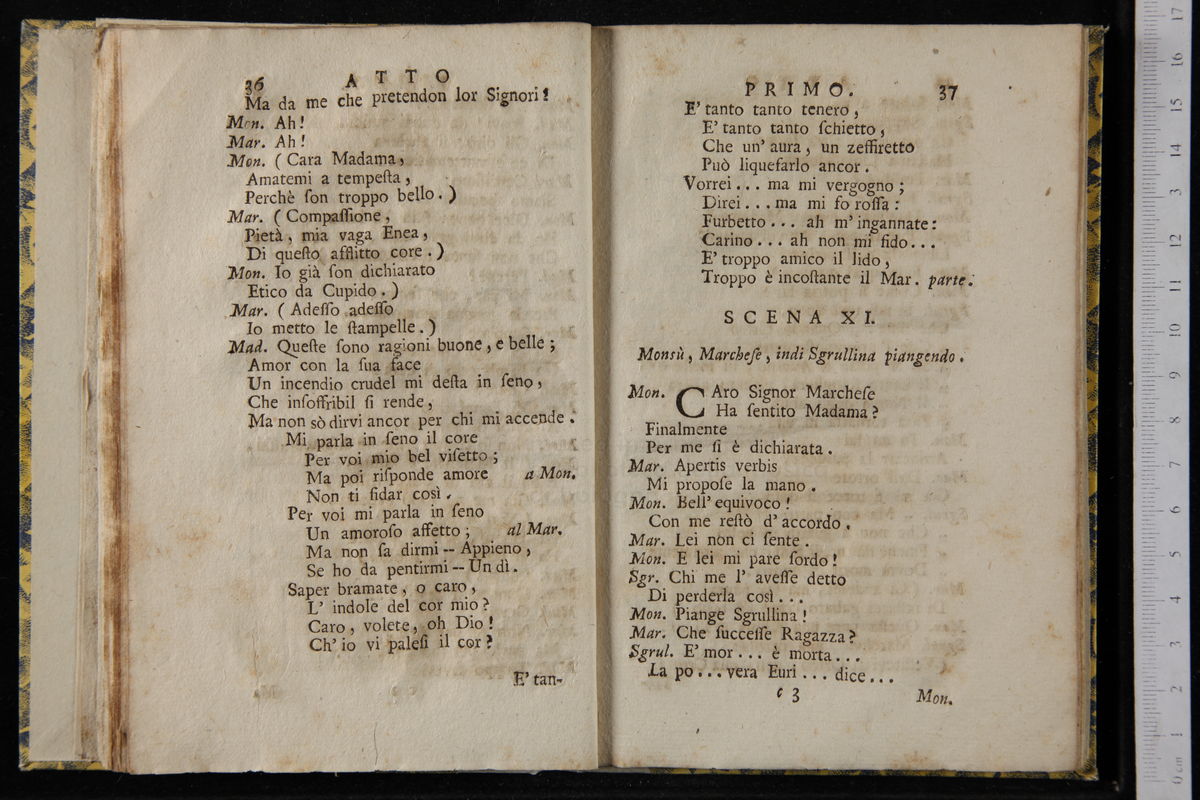 36 ATTO
Ma da me che pretendon lor Signori?
Mon. Ah!
Mar. Ah!
Mon. ( Cara Madama,
Amatemi a tempeſta,
Perchè ſon troppo bello. )
Mar. ( Compaſſione,
Pietà, mia vaga Enea,
Di queſto afflitto core. )
Mon. Io già ſon dichiarato
Etico da Cupido. )
Mar. ( Adeſſo adeſſo
Io metto le ſtampelle. )
Mad. Queſte ſono ragioni buone, e belle;
Amor con la ſua face
Un incendio crudel mi deſta in ſeno,
Che inſoffribil ſi rende,
Ma non sò dirvi ancor per chi mi accende.
Mi parla in ſeno il core
Per voi mio bel viſetto;
Ma poi riſponde amore a Mon.
Non ti fidar così.
Per voi mi parla in ſeno
Un amoroſo affetto; al Mar.
Ma non ſa dirmi -- Appieno,
Se ho da pentirmi -- Un dì.
Saper bramate, o caro,
L' indole del cor mio?
Caro, volete, oh Dio!
Ch' io vi paleſi il cor?
E' tan-
PRIMO. 37
E' tanto tanto tenero,
E' tanto tanto ſchietto,
Che un' aura, un zeffiretto
Può liquefarlo ancor.
Vorrei... ma mi vergogno;
Direi... ma mi fo roſſa:
Furbetto... ah m' ingannate:
Carino... ah non mi fido...
E' troppo amico il lido,
Troppo è incoſtante il Mar. parte.
SCENA XI.
Monsù, Marcheſe, indi Sgrullina piangendo.
Mon. CAro Signor Marcheſe
Ha ſentito Madama?
Finalmente
Per me ſi è dichiarata.
Mar. Apertis verbis
Mi propoſe la mano.
Mon. Bell' equivoco!
Con me reſtò d' accordo.
Mar. Lei non ci ſente.
Mon. E lei mi pare ſordo!
Sgr. Chi me l' aveſſe detto
Di perderla così...
Mon. Piange Sgrullina!
Mar. Che ſucceſſe Ragazza?
Sgrul. E' mor... è morta...
La po... vera Euri... dice...
c 3 Mon.
0 cm 1 2 3 4 5 6 7 8 9 10 11 12 13 14 15 16 17